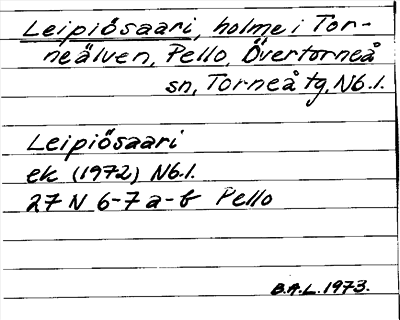 Leipiösaari, holme i Tor-
neälven, Pello, Övertorneå
sn, Torneå tg, Nb. l.
Leipiösaari
ek (1972) Nb. l.
27 N 6-7 a-b Pello
B.A.L. 1973.